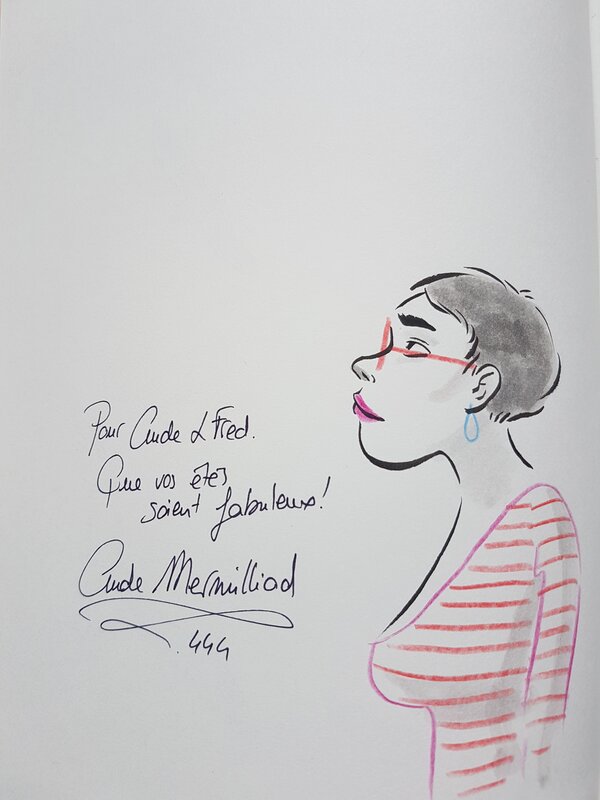 Pour Aude & Fred.
Que vos étés
soient fabuleux!
Aude Mermilliod
.444